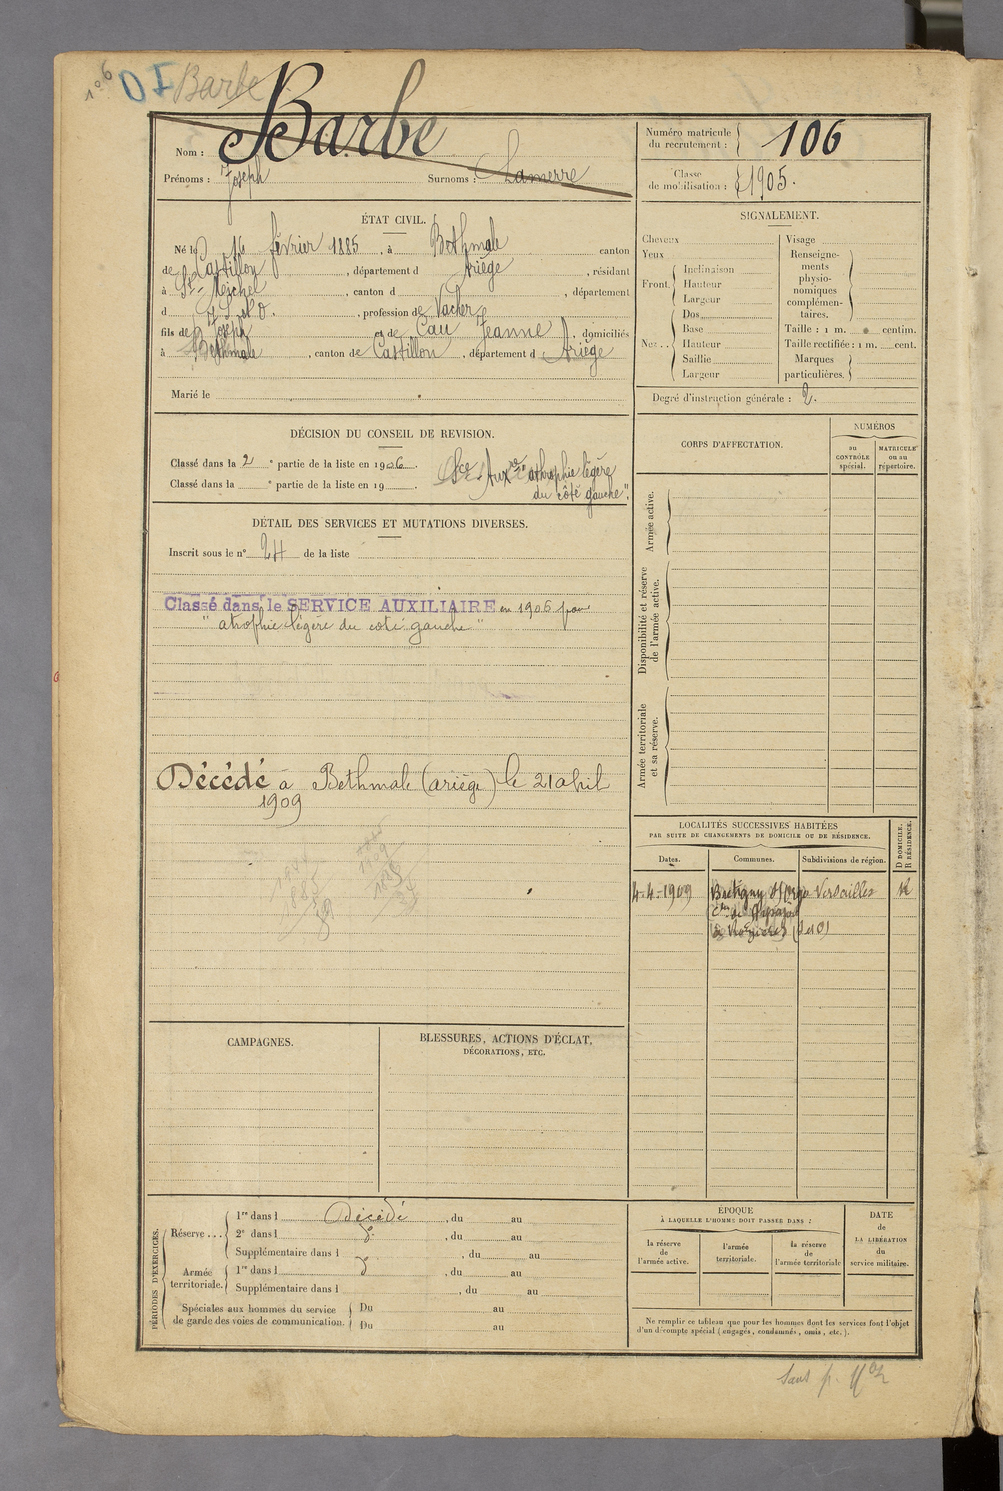 106 DI Barbe
Nom : Barbe
Prénoms : Joseph Surnoms : Lamerre
Numéro matricule du recrutement : 106
Classe de mobilisation : 1905.
ÉTAT CIVIL.
Né le 16 février 1885, à Bethmale canton
de Castillon, département d Ariège, résidant
à St-Michel, canton d , département
d S. et O., profession de Vacher
fils de Joseph et de Cau Jeanne, domiciliés
à Bethmale, canton de Castillon, département d Ariège
Marié le
SIGNALEMENT.
Cheveux
Yeux
Front. Inclinaison
Hauteur
Largeur
Nez.. Dos
Base
Hauteur
Saillie
Largeur
Visage
Renseigne-
ments
physio-
nomiques
complémen-
taires.
Taille : 1 m. centim.
Taille rectifiée : 1 m. cent.
Marques
particulières.
Degré d'instruction générale : 2.
DÉCISION DU CONSEIL DE REVISION.
Classé dans la 2 e partie de la liste en 1906. Sce Auxre "atrophie légère
Classé dans la e partie de la liste en 19 . du côté gauche".
DÉTAIL DES SERVICES ET MUTATIONS DIVERSES.
Inscrit sous le n° 24 de la liste
Classé dans le SERVICE AUXILIAIRE en 1906 pour
"atrophie légère du coté gauche"
Décédé à Bethmale (ariège) le 21 abril
1909
CORPS D'AFFECTATION.
NUMÉROS
au
CONTRÔLE
spécial.
MATRICULE
ou au
répertoire.
Armée active.
Disponibilité et réserve
de l'armée active.
Armée territoriale
et sa réserve.
LOCALITÉS SUCCESSIVES HABITÉES
PAR SUITE DE CHANGEMENTS DE DOMICILE OU DE RÉSIDENCE.
D DOMICILE.
R RÉSIDENCE.
Dates. Communes. Subdivisions de région.
4-4-1909 Bretigny s/Orge Versailles R
(S et O)
CAMPAGNES.
BLESSURES, ACTIONS D'ÉCLAT,
DÉCORATIONS, ETC.
PÉRIODES D'EXERCICES.
Réserve... 1re dans l Décédé, du au
2e dans l , du au
Supplémentaire dans l , du au
Armée
territoriale. 1re dans l , du au
Supplémentaire dans l , du au
Spéciales aux hommes du service
de garde des voies de communication. Du au
Du au
ÉPOQUE
À LAQUELLE L'HOMME DOIT PASSER DANS :
la réserve
de
l'armée active.
l'armée
territoriale.
la réserve
de
l'armée territoriale
DATE
de
LA LIBÉRATION
du
service militaire.
Ne remplir ce tableau que pour les hommes dont les services font l'objet
d'un décompte spécial (engagés, condamnés, omis, etc.).